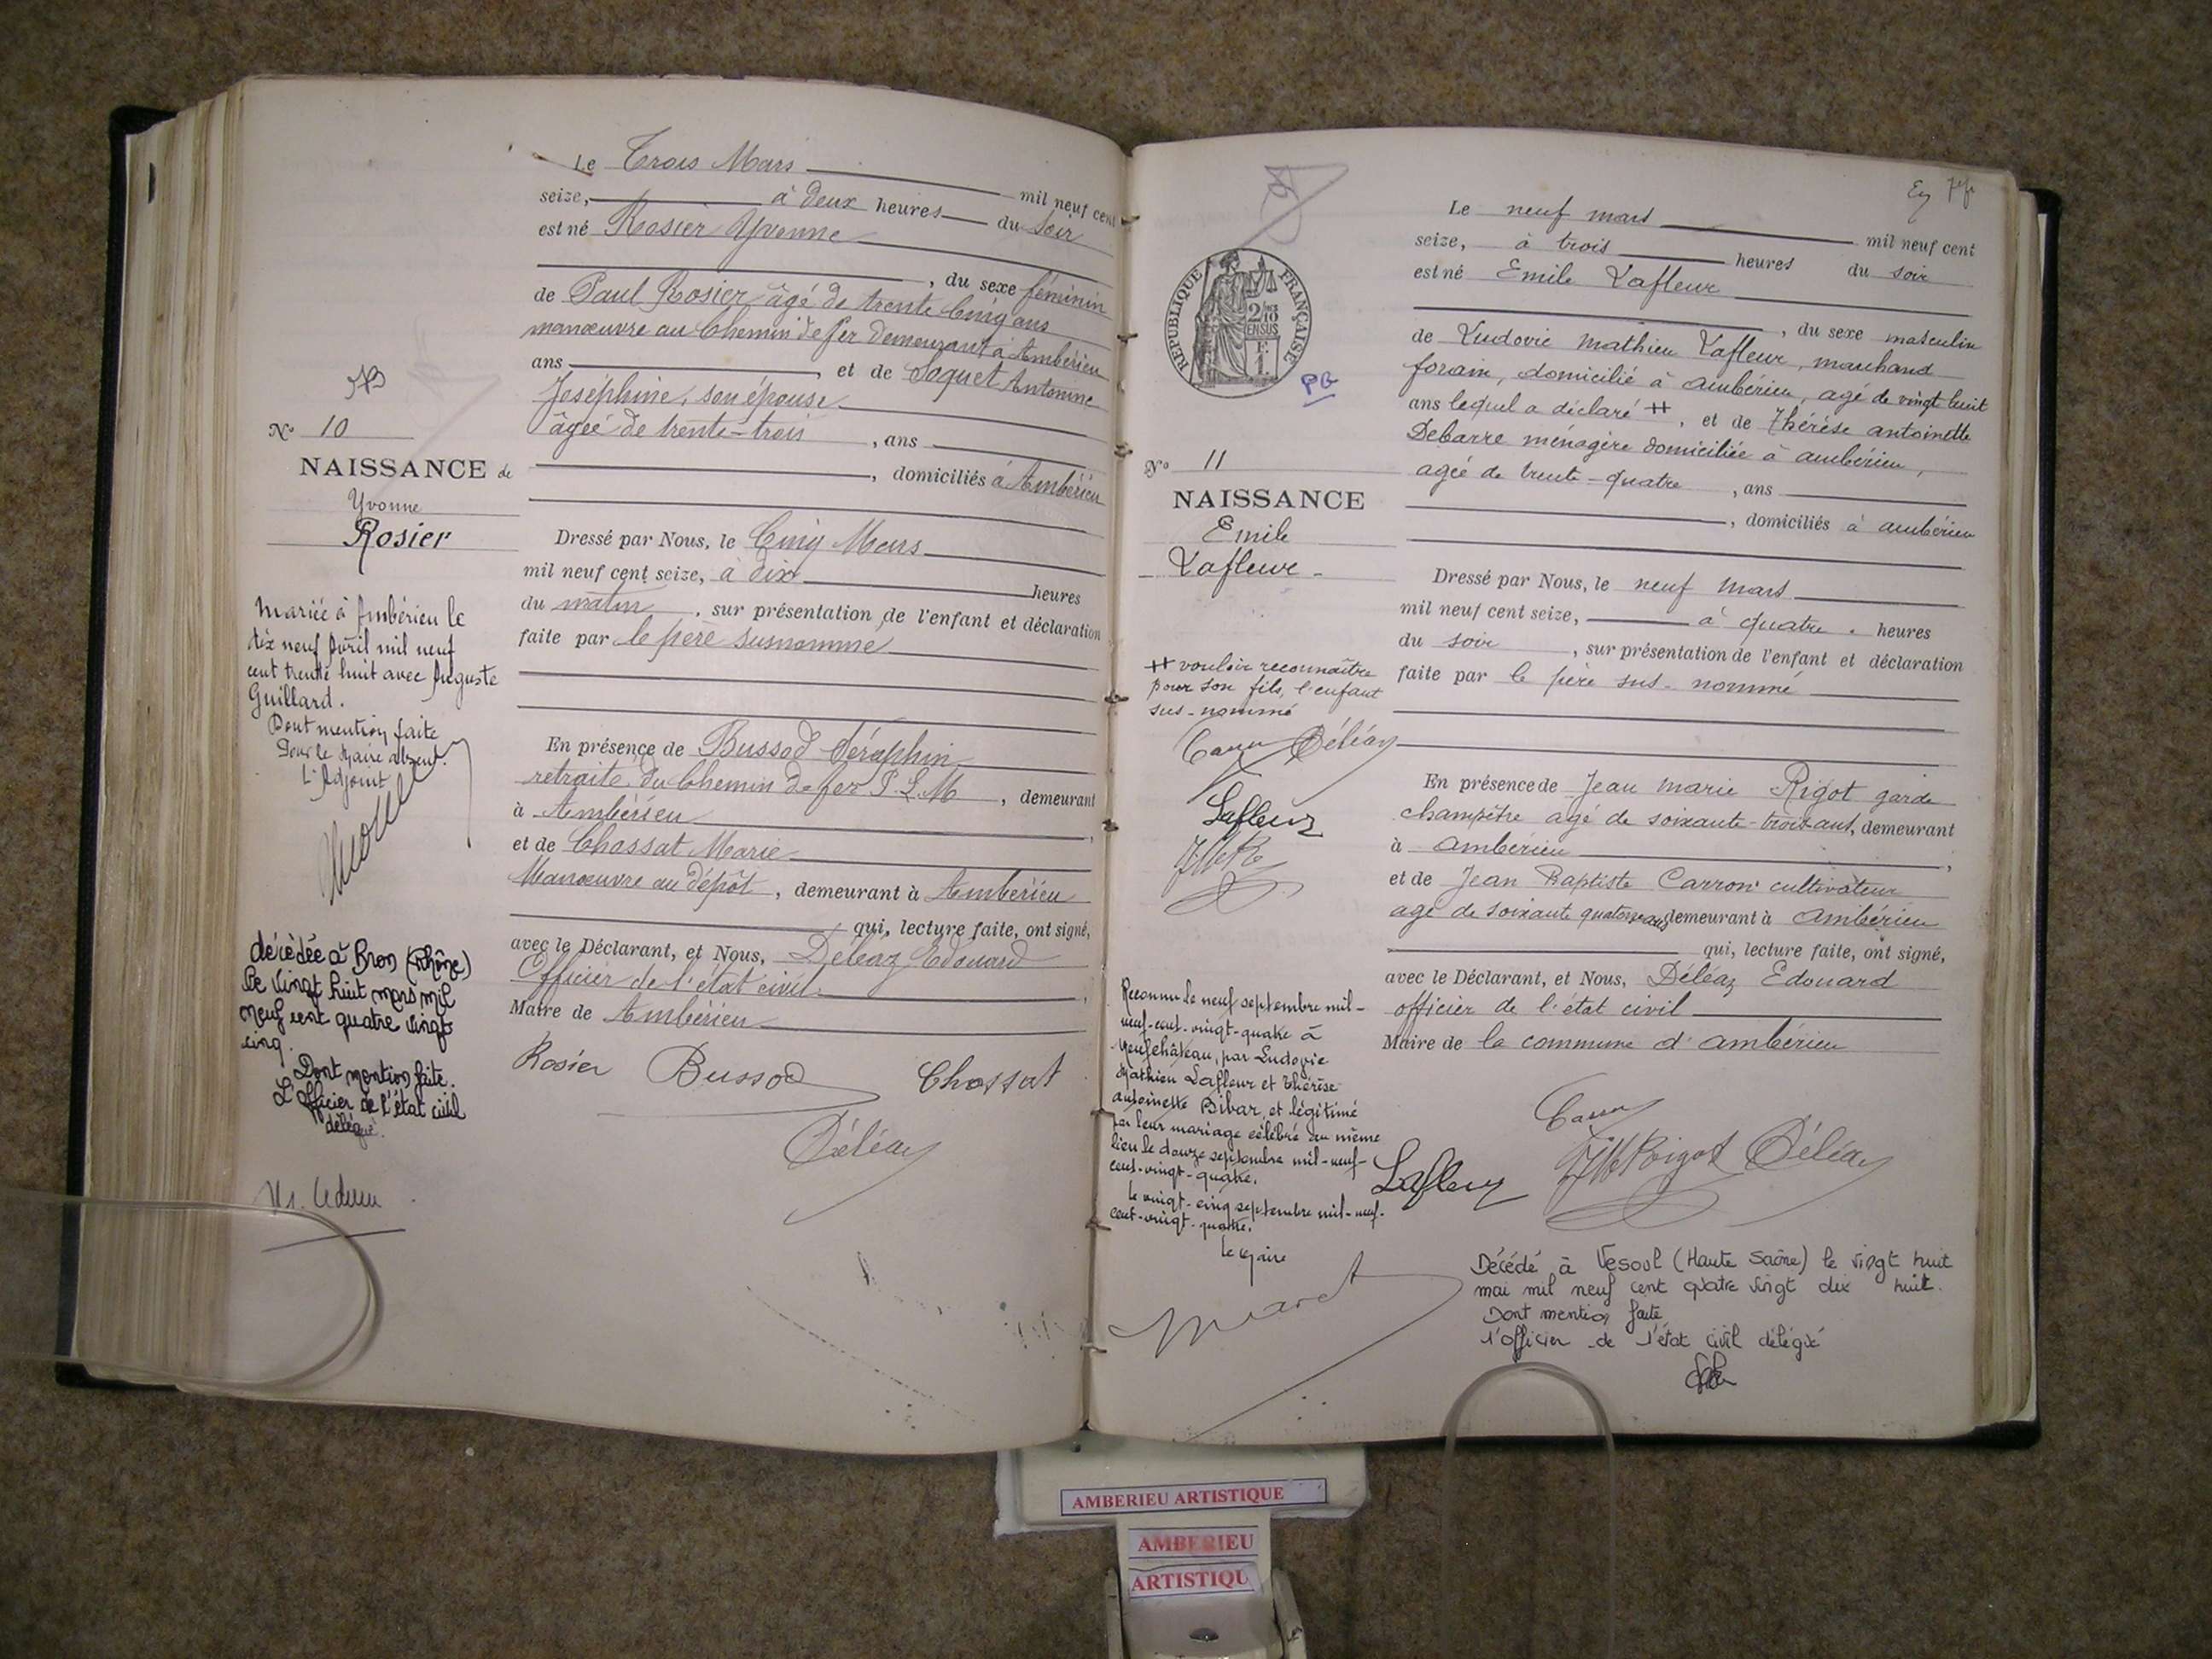 Le Trois Mars mil neuf cent
seize, à Deux heures du Soir
est né Rosier Yvonne
, du sexe féminin
de Paul Rosier âgé de trente Cinq ans
manœuvre au Chemin de fer demeurant à Ambérieu
ans , et de Soquet Antonine
Joséphine, son épouse
âgée de trente-trois , ans
, domiciliés à Ambérieu
N° 10
NAISSANCE de
Yvonne
Rosier
Dressé par Nous, le Cinq Mars
mil neuf cent seize, à dix heures
du matin , sur présentation de l'enfant et déclaration
faite par le père susnommé
Mariée à Ambérieu le
dix neuf Avril mil neuf
cent trente huit avec Auguste
Guillard.
Dont mention faite
Pour le Maire absent.
L'Adjoint
En présence de Bussod Séraphin
retraité du Chemin de fer P.L.M , demeurant
à Ambérieu ,
et de Chossat Marie
Manœuvre au dépôt , demeurant à Ambérieu
qui, lecture faite, ont signé,
avec le Déclarant, et Nous, Déléaz Edouard
Officier de l'état civil ,
Maire de Ambérieu
décédée à Bron (Rhône)
le vingt huit mars mil
neuf cent quatre vingt
cinq.
Dont mention faite.
L'officier de l'état civil
délégué.
Rosier Bussod Chossat
Déléaz
RÉPUBLIQUE FRANÇAISE
2/10
EN SUS
PG
Le neuf mars mil neuf cent
seize, à trois heures du soir
est né Emile Lafleur
, du sexe masculin
de Ludovic Mathieu Lafleur, marchand
forain, domicilié à Ambérieu, agé de vingt huit
ans lequel a déclaré ++ , et de Thérèse antoinette
Debarre ménagère domiciliée à ambérieu,
agée de trente-quatre , ans
, domiciliés à ambérieu
N° 11
NAISSANCE
Emile
Lafleur
Dressé par Nous, le neuf mars
mil neuf cent seize, à quatre heures
du soir , sur présentation de l'enfant et déclaration
faite par le père sus-nommé
++ vouloir reconnaître
pour son fils, l'enfant
sus-nommé
Déléaz
Lafleur
En présence de Jean marie Rigot garde
champêtre agé de soixante-trois ans, demeurant
à Ambérieu ,
et de Jean Baptiste Carron cultivateur
agé de soixante quatorze ans demeurant à Ambérieu
qui, lecture faite, ont signé,
avec le Déclarant, et Nous, Déléaz Edouard
officier de l'état civil
Maire de la commune d'Ambérieu
Reconnu le neuf septembre mil-
neuf-cent-vingt-quatre à
Neufchâteau, par Ludovic
Mathieu Lafleur et Thérèse
antoinette Bibar, et légitimé
par leur mariage célébré au même
lieu le douze septembre mil-neuf-
cent-vingt-quatre.
Le vingt-cinq septembre mil-neuf-
cent-vingt-quatre.
Le Maire
Lafleur JM Rigot Déléaz
Décédé à Vesoul (Haute Saône) le vingt huit
mai mil neuf cent quatre vingt dix huit.
Dont mention faite
l'officier de l'état civil délégué
AMBERIEU ARTISTIQUE
AMBERIEU
ARTISTIQU